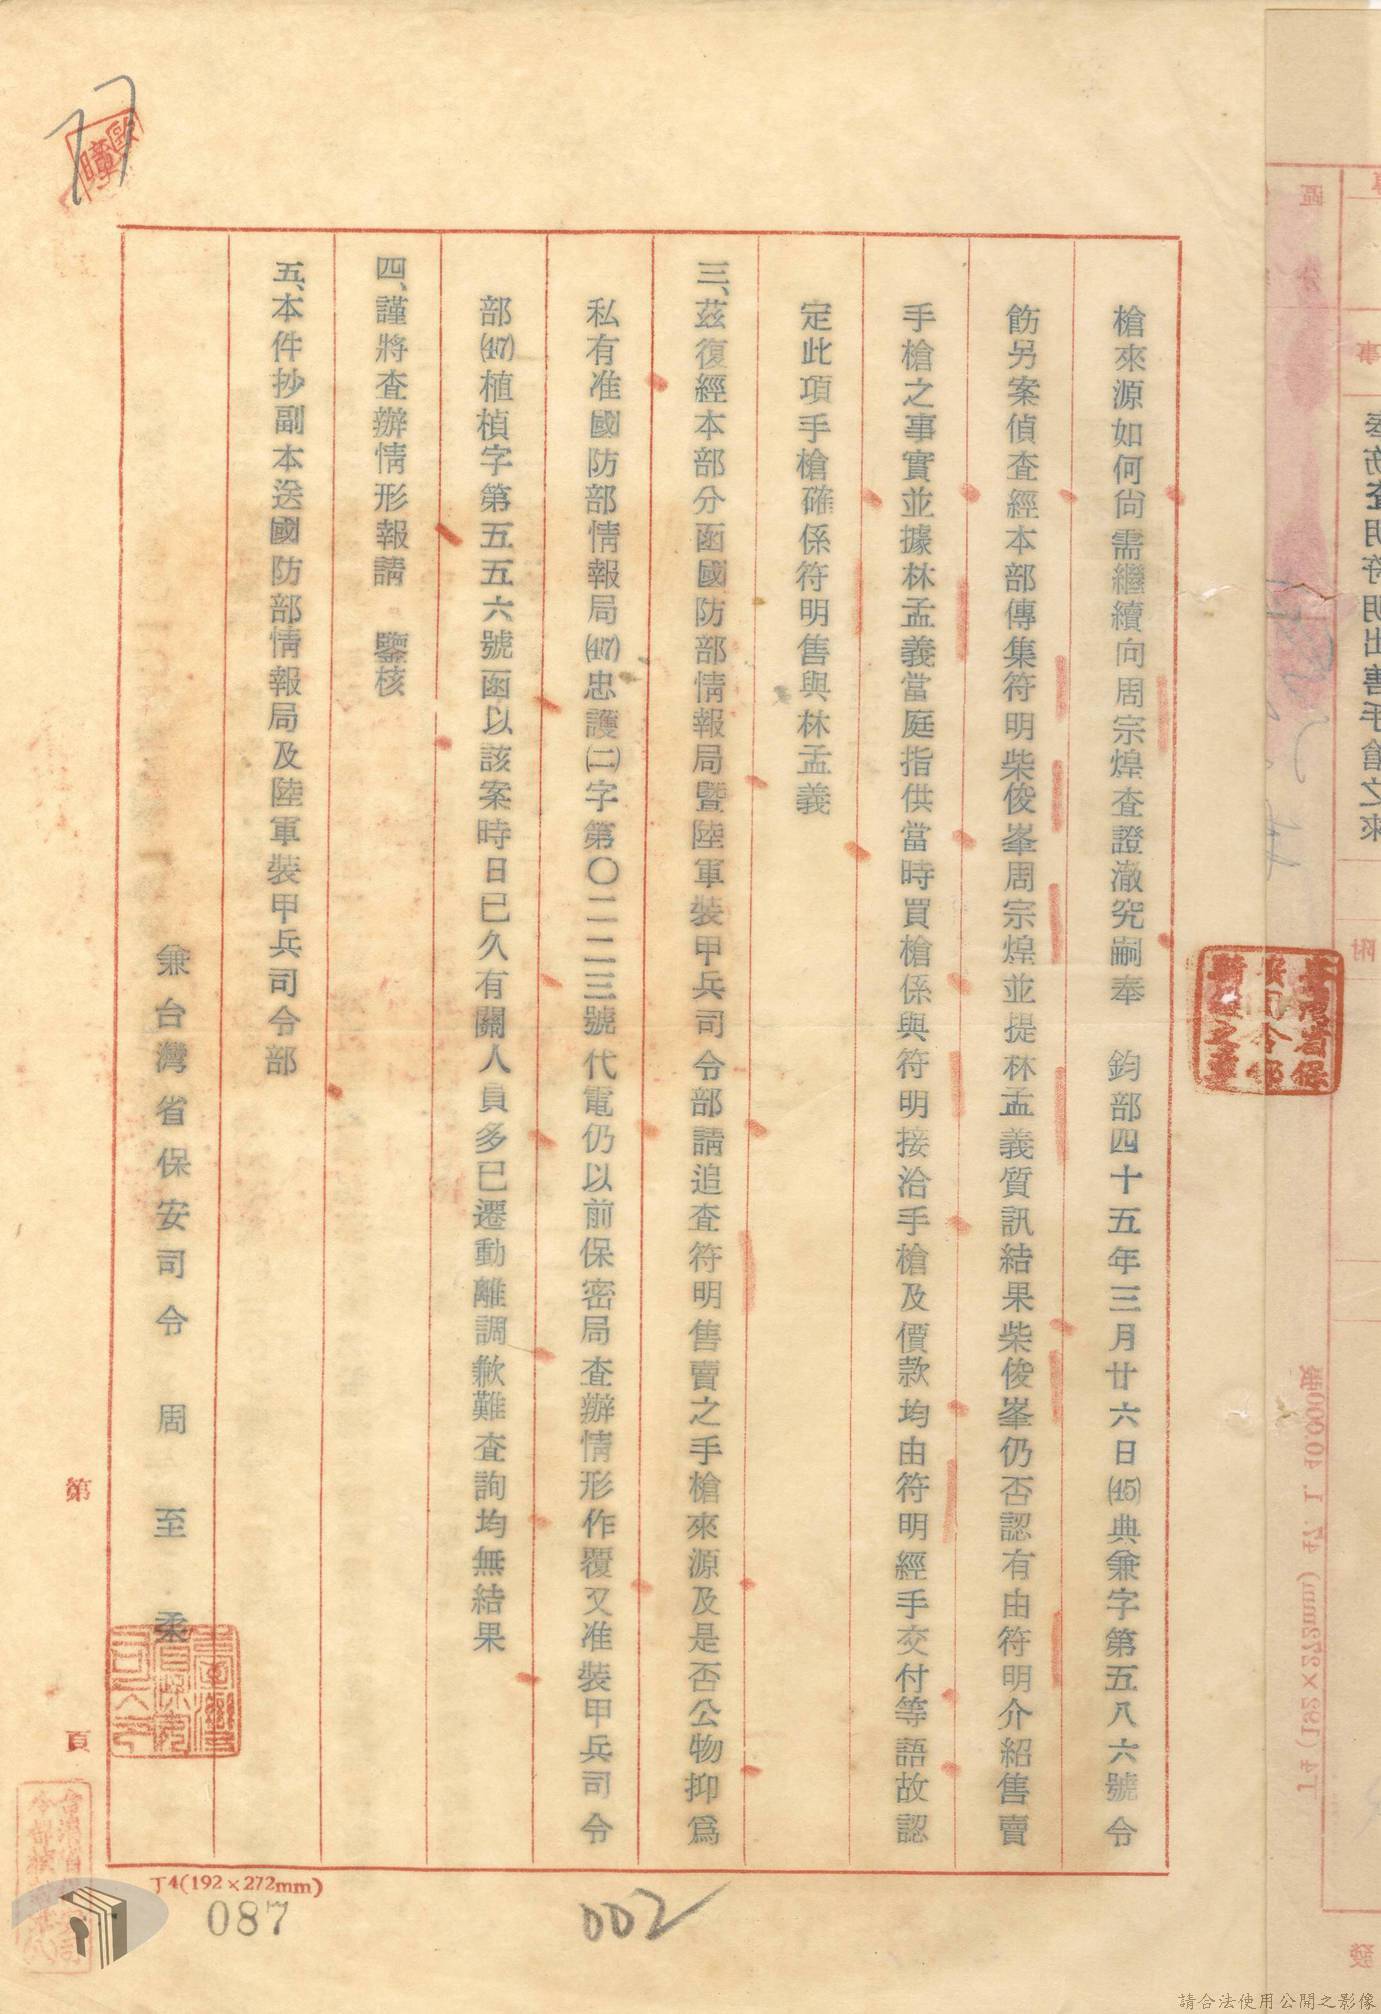 槍來源如何尙需繼續向周宗煌査證澈究嗣奉　鈞部四十五年三月廿六日(45)典兼字第五八六號令
飭另案偵査經本部傳集符明柴俊峯周宗煌並提林孟義質訊結果柴俊峯仍否認有由符明介紹售賣
手槍之事實並據林孟義當庭指供當時買槍係與符明接洽手槍及價款均由符明經手交付等語故認
定此項手槍確係符明售與林孟義
三、茲復經本部分函國防部情報局暨陸軍裝甲兵司令部請追査符明售賣之手槍來源及是否公物抑爲
私有准國防部情報局(47)忠護㈡字第〇二二三號代電仍以前保密局査辦情形作覆又准裝甲兵司令
部(47)植楨字第五五六號函以該案時日已久有關人員多已遷動離調歉難査詢均無結果
四、謹將査辦情形報請　鑒核
五、本件抄副本送國防部情報局及陸軍裝甲兵司令部
兼台灣省保安司令　周至柔
第　頁
丁4(192×272mm)
087
002
請合法使用公開之影像